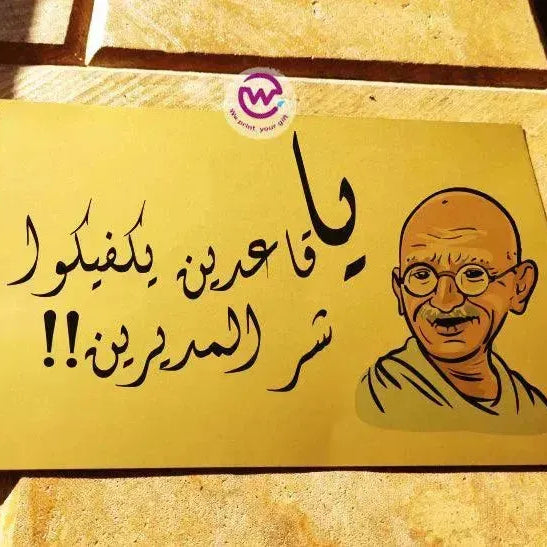 Ww.print your gift
يا قاعدين يكفيكوا
شر المديرين!!